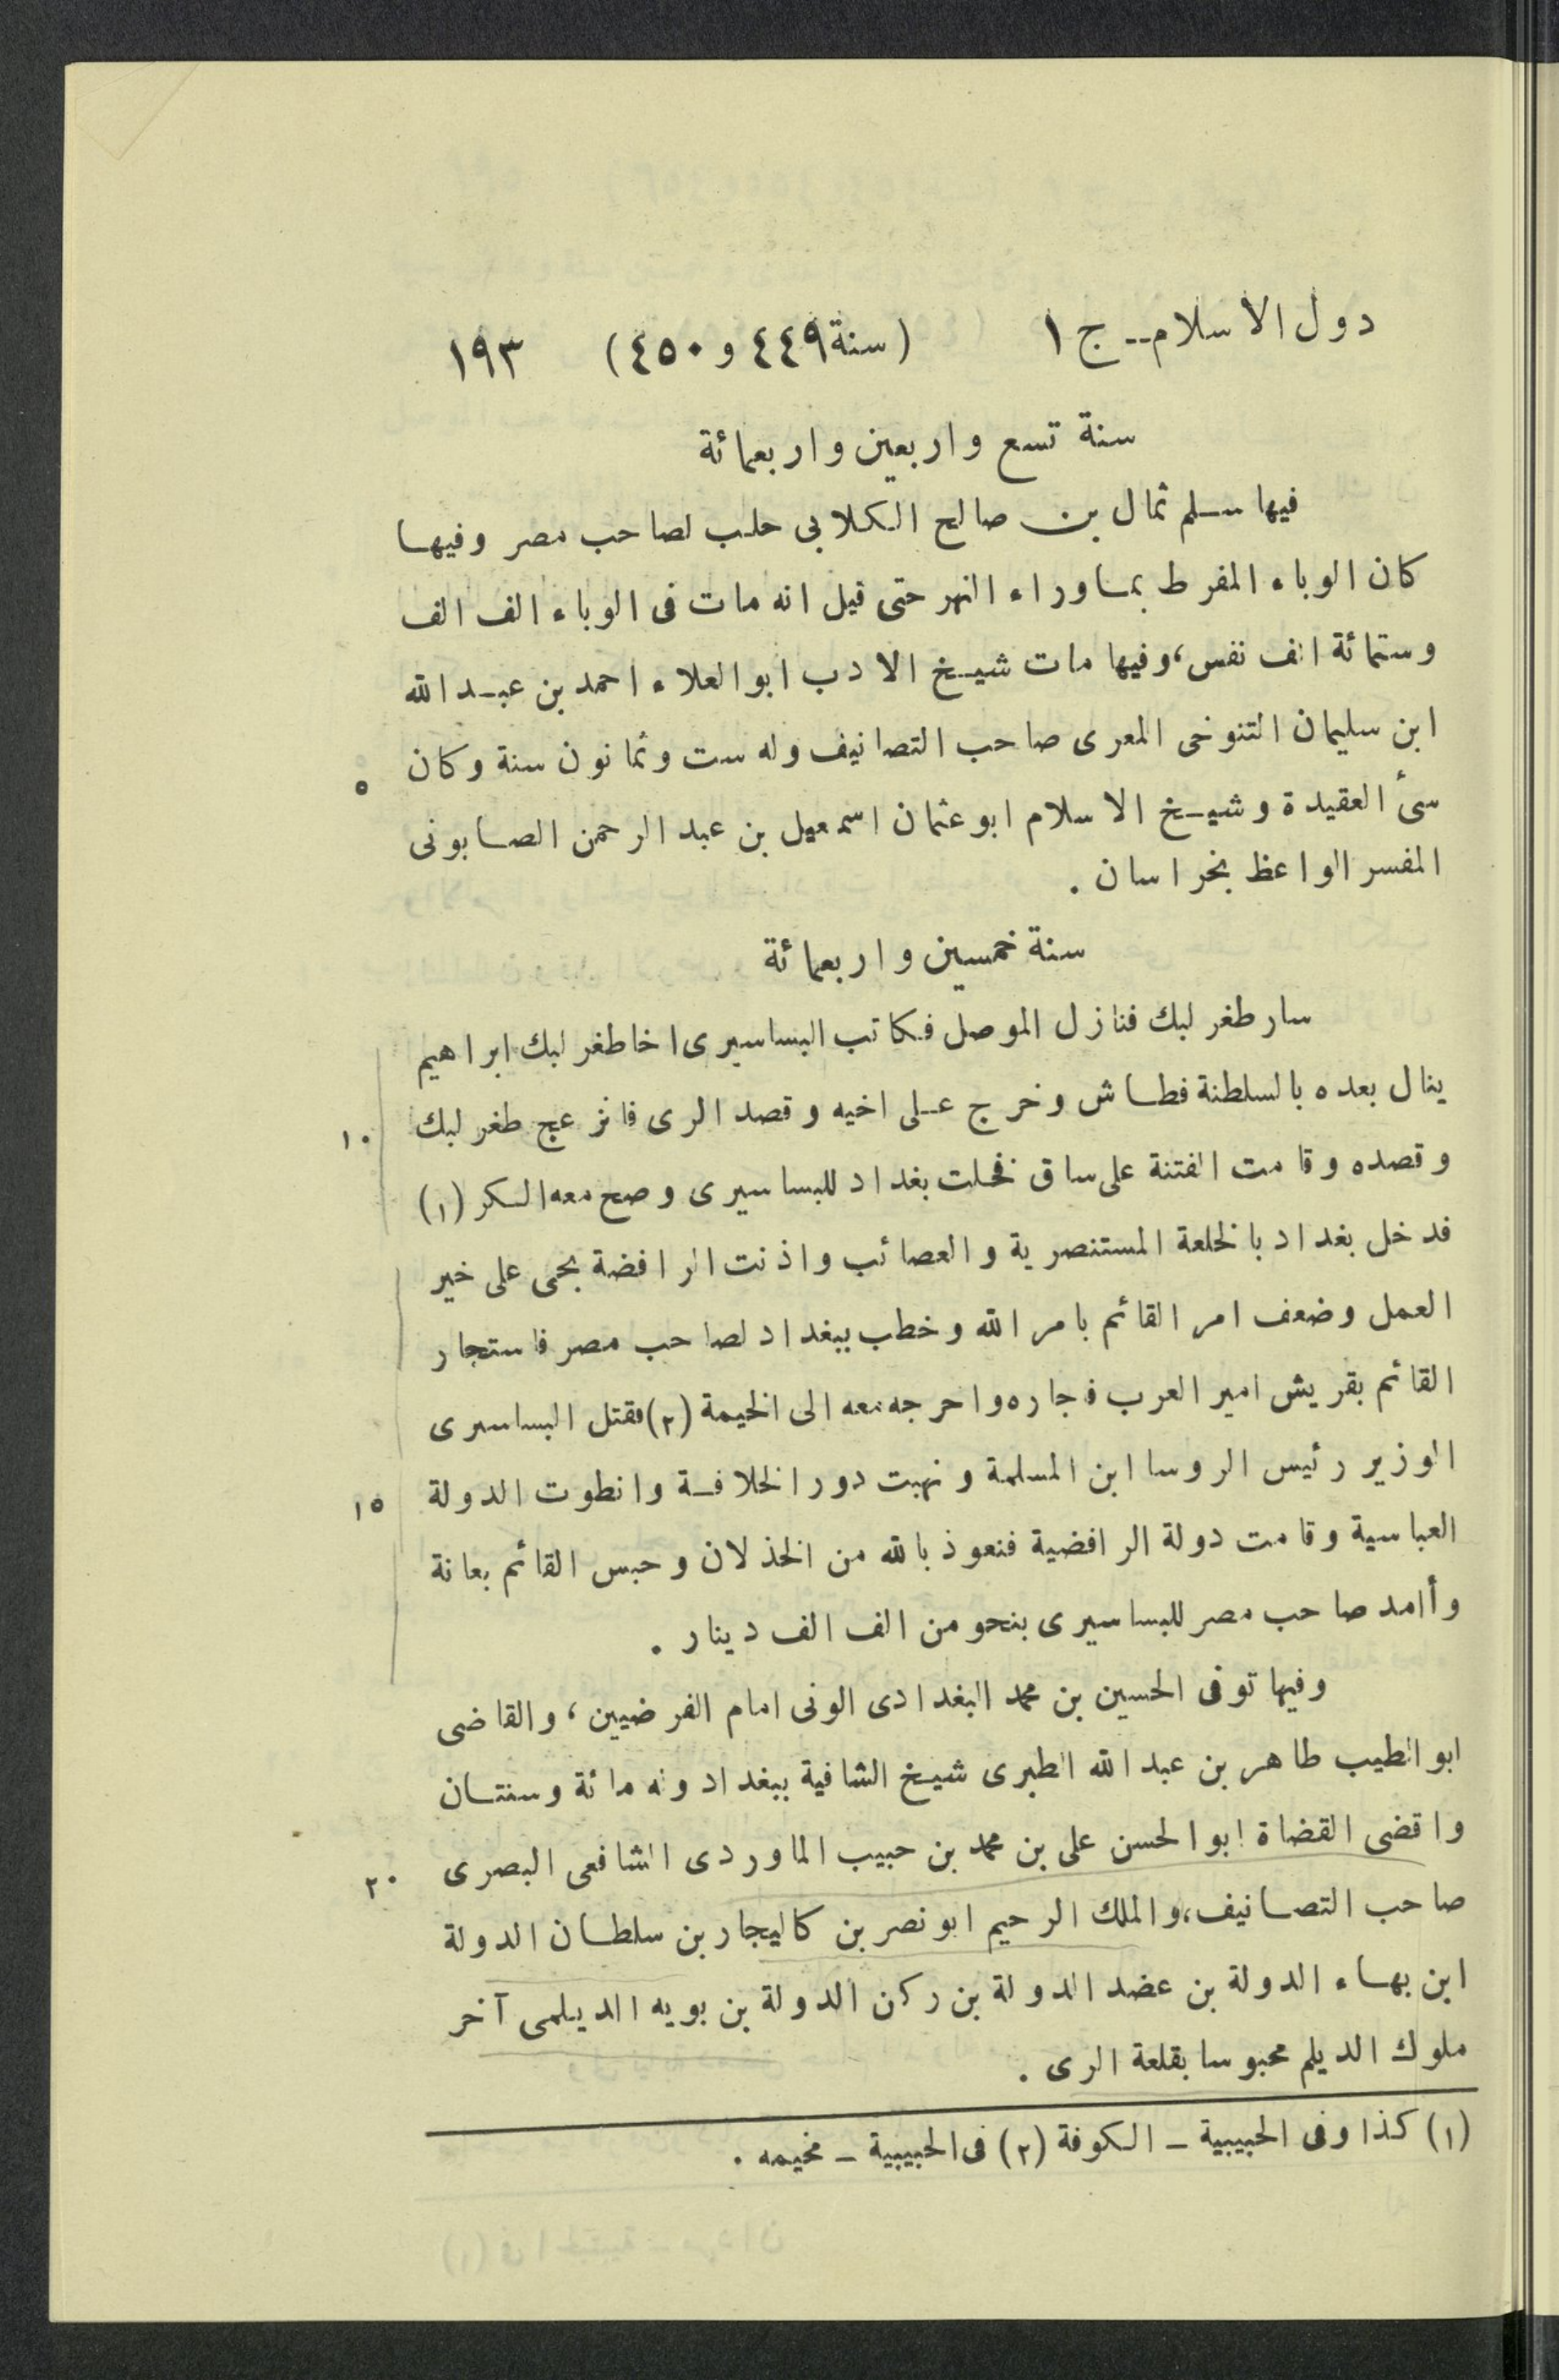 دول الاسلام-- ج ١ (سنة ٤٤٩ و ٤٥٠) ١٩٣
سنة تسع واربعين واربعمائة
فيها سلم ثمال بن صالح الكلابى حلب لصاحب مصر وفيها
كان الوباء المفرط بماوراء النهر حتى قيل انه مات فى الوباء الف الف
وستمائة الف نفس، وفيها مات شيخ الادب ابوالعلاء احمد بن عبدالله
ابن سليمان التنوخى المعرى صاحب التصانيف وله ست وثمانون سنة وكان ٥
سىٔ العقيدة وشيخ الاسلام ابوعثمان اسمعيل بن عبد الرحمن الصابونى
المفسر الواعظ بخراسان .
سنة خمسين واربعمائة
سار طغرلبك فنازل الموصل فكاتب البساسيرى اخا طغرلبك ابراهيم
ينال بعده بالسلطنة فطاش وخرج على اخيه وقصد الرى فانزعج طغرلبك ١٠
وقصده وقامت الفتنة على ساق فخلت بغداد للبساسيرى وصح معه السكر (١)
فدخل بغداد بالخلعة المستنصرية والعصائب واذنت الرافضة بحى على خير
العمل وضعف امر القائم بامر الله وخطب ببغداد لصاحب مصر فاستجار
القائم بقريش امير العرب فجاره واخرجه معه الى الخيمة (٢) فقتل البساسرى
الوزير رئيس الروسا ابن المسلمة ونهبت دور الخلافة وانطوت الدولة ١٥
العباسية وقامت دولة الرافضية فنعوذ بالله من الخذلان وحبس القائم بعانة
وأامد صاحب مصر للبساسيرى بنحو من الف الف دينار .
وفيها توفى الحسين بن محمد البغدادى الونى امام الفرضيين، والقاضى
ابوالطيب طاهر بن عبد الله الطبرى شيخ الشافية ببغداد وله مائة وسنتان
واقضى القضاة ابوالحسن على بن محمد بن حبيب الماوردى الشافعى البصرى ٢٠
صاحب التصانيف، والملك الرحيم ابونصر بن كاليجار بن سلطان الدولة
ابن بهاء الدولة بن عضد الدولة بن ركن الدولة بن بويه الديلمى آخر
ملوك الديلم محبوسا بقلعة الرى .
(١) كذا وفى الحبيبية - الكوفة (٢) فى الحبيبية - مخيمه .